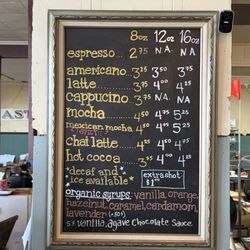 8oz 12oz 16oz
espresso... 2.75 N.A. N.A.
americano 3.25 3.50 3.75
latte 3.75 4.00 4.25
cappuccino 3.75 N.A. N.A.
mocha 4.50 4.75 5.25
mexican mocha 4.50 4.75 5.25
chai latte 4.25
hot cocoa 3.50 4.00 4.25
*decaf and *
"ice available"
extra shot
$1.00
organic syrups: vanilla, orange,
hazelnut, caramel, cardamom,
lavender (+50¢)
vanilla, agave chocolate sauce